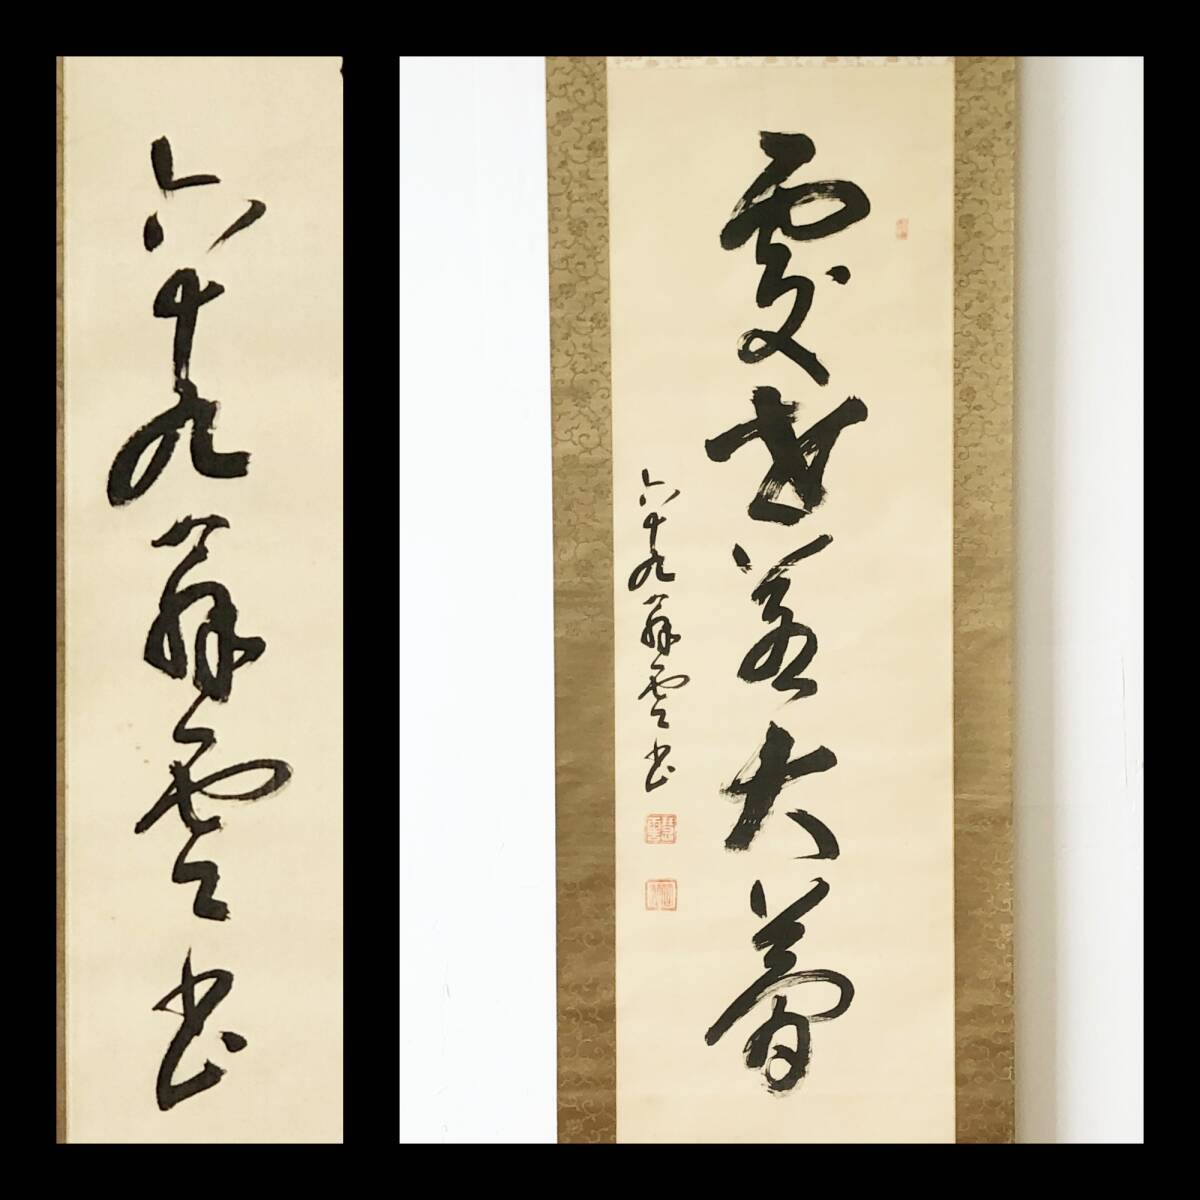 六十九雲書
處世若大夢
六十九雲書